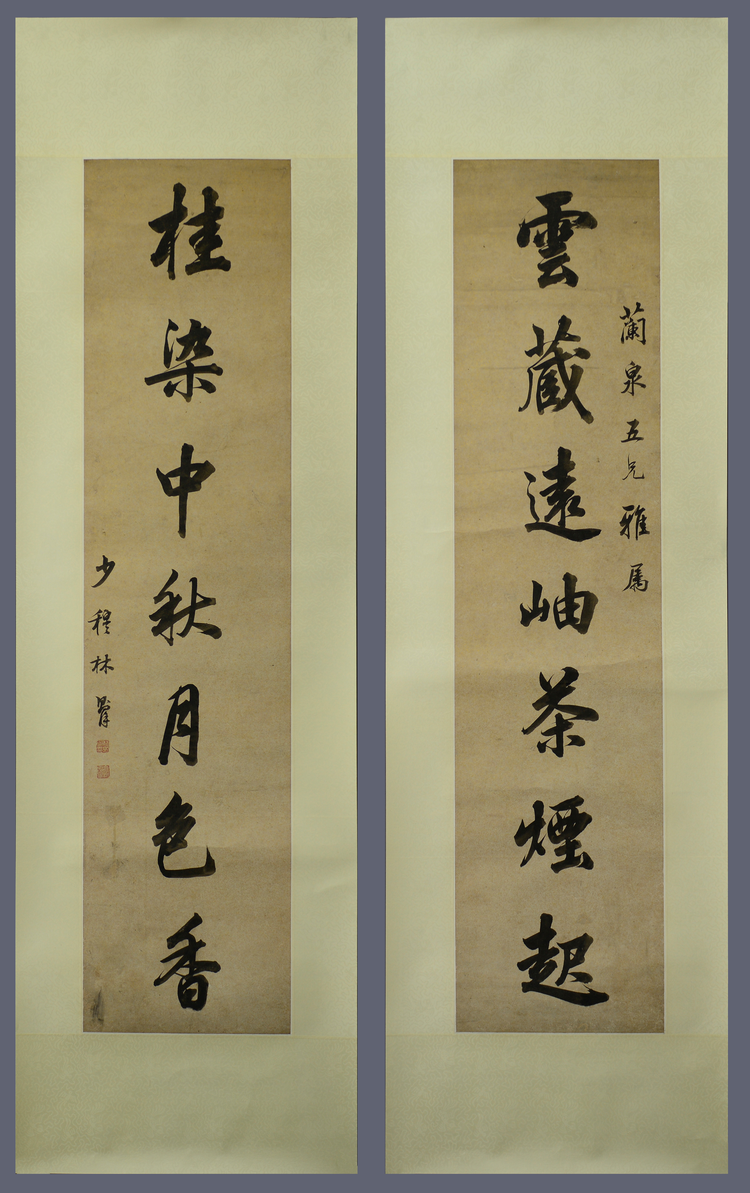 蘭泉五兄雅屬
雲藏遠岫茶煙起
桂染中秋月色香
少穆林